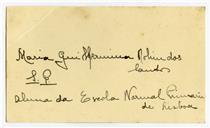 Maria Guilhermina
Santos
S. P.
aluna da Escola Normal Primaria
de Lisboa